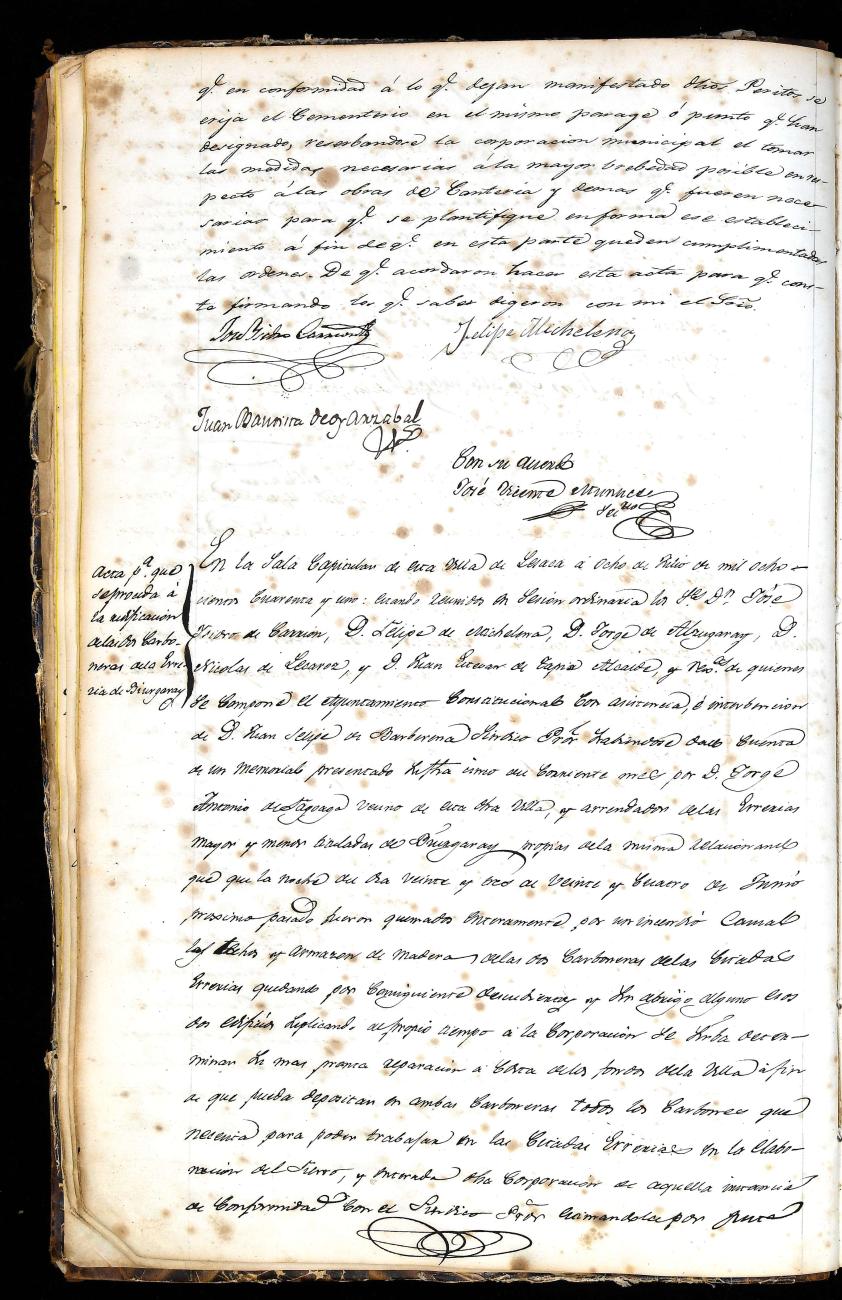 qᵉ. en conformidad á lo qᵉ. dejan manifestado dhos. Peritos se
erija el Cementerio en el mismo parage ó punto qᵉ. han
designado, reserbandose la corporacion municipal el tomar
las medidas necesarias á la mayor brebedad posible en res-
pecto á las obras de Canteria y demas qᵉ. fueren nece-
sarias para qᵉ. se plantifique en forma ese estableci-
miento á fin de qᵉ. en esta parte queden cumplimentadas
las ordenes. De qᵉ. acordaron hacer esta acta para qᵉ. cons-
te firmando los qᵉ. saber digeron con mi el Scño.
José Ysidro Carrion
Felipe Michelena
Juan Bautista de Oyarzabal
Con su acuerdo
José Vicente
Secrio
Acta pª. que
se proceda á
la redificacion
de las dos Carbo-
neras de la Erre-
ria de Biurgaray
En la Sala Capitular de esta Villa de Lesaca á ocho de Julio de mil ocho-
cientos Cuarenta y uno: estando reunidos en Sesion ordinaria los Sʳᵉˢ Dⁿ. José
Ysidro de Carrion, D. Felipe de Michelena, D. Jorge de Alzugaray, D.
Nicolas de, y D. Juan Estevan de Tapia Alcalde, y de quienes
se compone el Ayuntamiento Constitucional con asistencia, é interbencion
de D. Juan Felipe de Barberena Sindico Prõr. habiendose dado Cuenta
de un memorial presentado del Corriente mes por D. Jorge
Antonio de vecino de esta dha Villa, y arrendador de las Errerias
mayor y menor tituladas de Biurgaray, propias de la misma
que que la noche del dia veinte y tres de veinte y Cuatro de Junio
proximo pasado fueron quemados enteramente por un incendio Casual
los techos y armazon de madera de las dos Carboneras de las Citadas
Errerias quedando por Consiguiente descubiertas y sin abrigo alguno esos
dos edificios suplicando al propio tiempo á la Corporacion se sirba deter-
minar la mas pronta reparacion á Costa de los fondos de la Villa á fin
de que pueda depositar en ambas Carboneras todos los Carbones que
nesecita para poder trabajar en las Citadas Errerias en la elabo-
racion del Fierro, y enterada dha Corporacion de aquella instancia
de Conformidad Con el Sindico Prõr. por